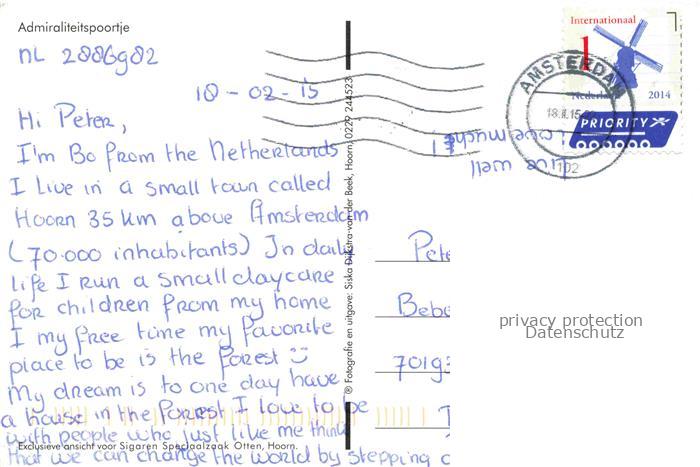 Admiraliteitspoortje
NL 2886902
18-02-15
Hi Peter,
I'm Bo from the Netherlands
I Live in a small town called
Hoorn 35 km above Amsterdam
(70.000 inhabitants) In daily
life I run a small daycare
for children from my home
I my free time my favorite
place to be is the forest
My dream is to one day have
a house in the forest I love to be
with people who just like me think
that we can change the world by stepping
Exclusieve ansicht voor Sigaren Speciaalzaak Otten, Hoorn.
® Fotografie en uitgave: Siska Dijkstra-van der Beek, Hoorn, 0229 244523
Live well
Love much
Internationaal
1
Nederland 2014
PRIORITY
AMSTERDAM
102
Pete
Bebe
privacy protection
Datenschutz